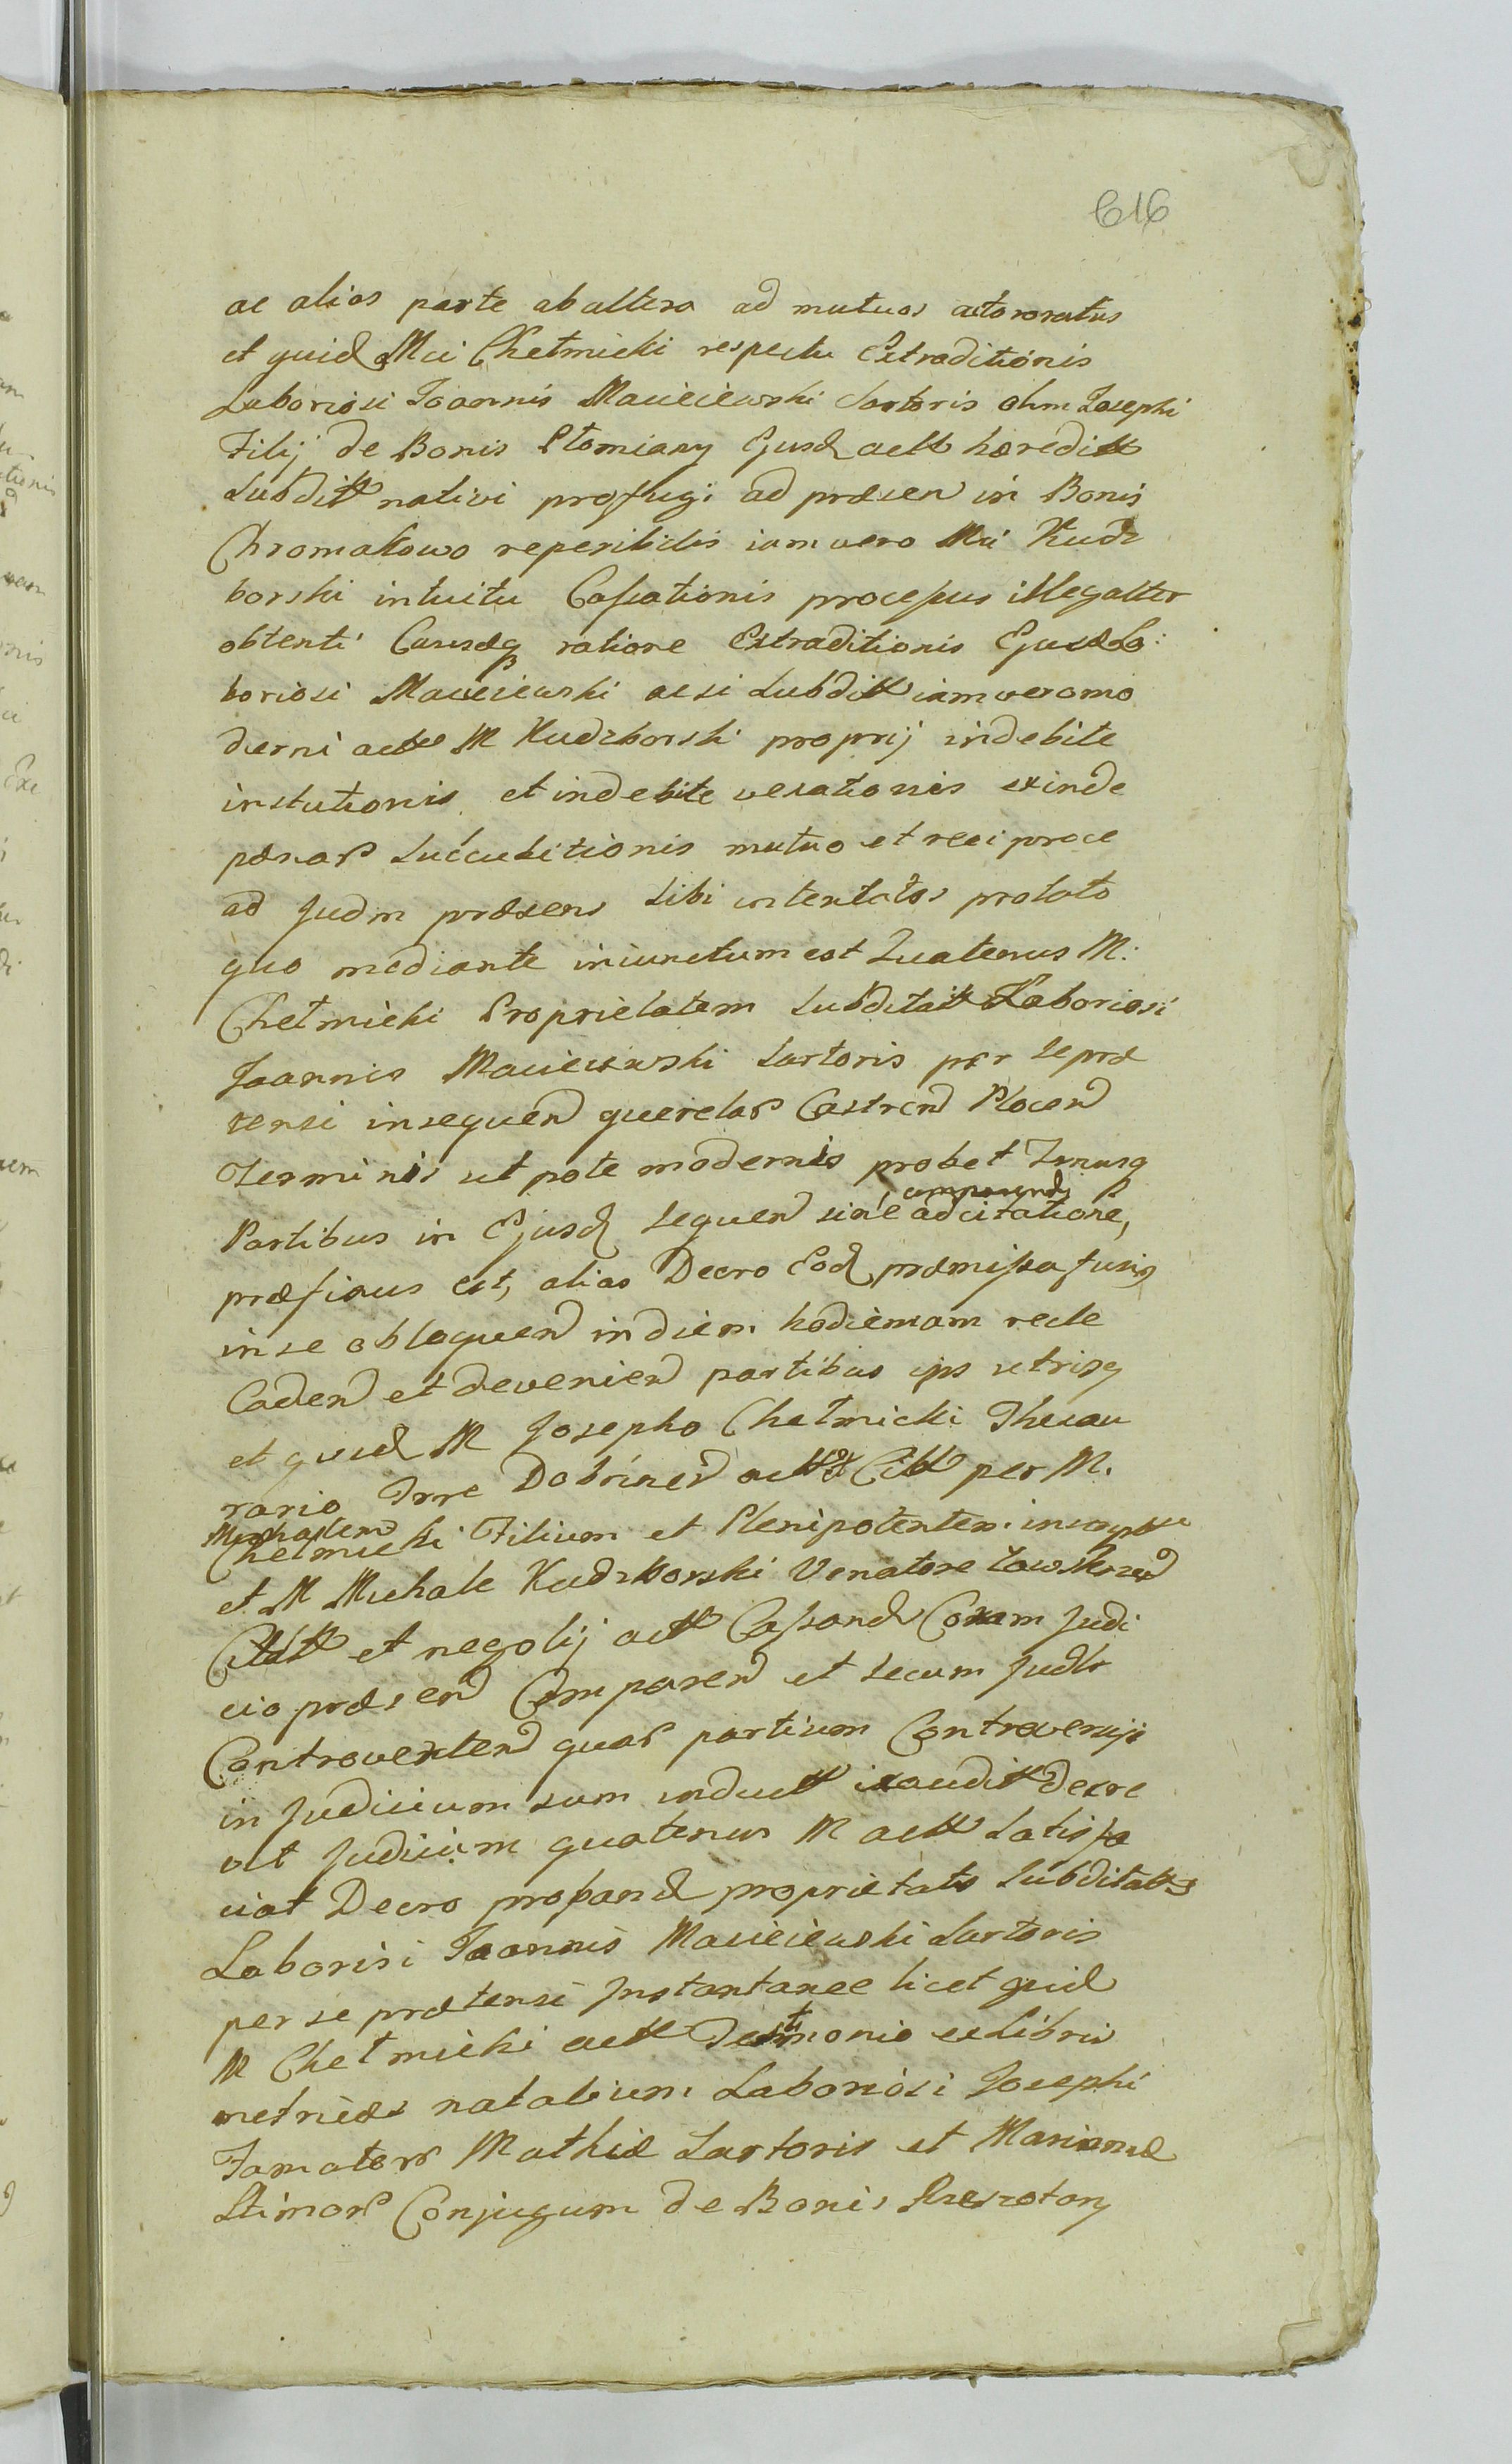 616
ac alias parte ab altera ad mutuas actoratus
et quid Mci Chełmicki respectu Extraditionis
Laboriosi Joannis Macieiewski Sartoris olim Josephi
Filij de Bonis Płomiany Ejusd actt hæreditt
Subditt nativi profugi ad præsen in Bonis
Chromakowo reperibilis iam vero Mci Kudz
borski intuitu Cassationis processus illegalter
obtenti Causæq ratione Extraditionis Ejusd La:
boriosi Macieiewski acsi Subditt iam vero mo
derni actt M Kudzborski proprij indebite
institutionis et indebite vexationis exinde
pænar Succubitionis mutuo et reciproce
ad Judm præsens Sibi intentatas prolato
quo mediante iniunctum est Quatenus M:
Chełmicki Proprietatem Subditatt Laboriosi
Joannis Macieiewski Sartoris per se præ
tensi insequen querelar Castren Plocen
Terminis ut pote modernis probet Tmusq
comparend
Partibus in Ejusd sequen sine adcitatione,
præfixus est, alias Decro Eod præmissa fusius
in se obloquen in diem hodiernam recte
Caden et devenien partibus ips utrisq
et quid M Josepho Chełmicki Thesau
rario Trre Dobrinen actt et Citt per M.
Michalem
Chełmicki Filium et Plenipotentem
et M Michale Kudzborski Venatore
Citt et negotij actt Cassand Coram Judi
cio præsen Comparen et secum Judlr
Controverten quar partium Controversijs
in Judicium sum induct exaudit decre
vit Judicium quatenus M actt Satisfa
ciat Decro proband proprietatis Subditatts
Laborisi Joannis Macieiewski Sartoris
per se prætensi Instantanee licet quid
M Chełmicki actt Testimonio ex Libris
metrices natalium Laboriosi Josephi
Famator Mathiæ Sartoris et Mariannæ
Ltimor Conjugum de Bonis